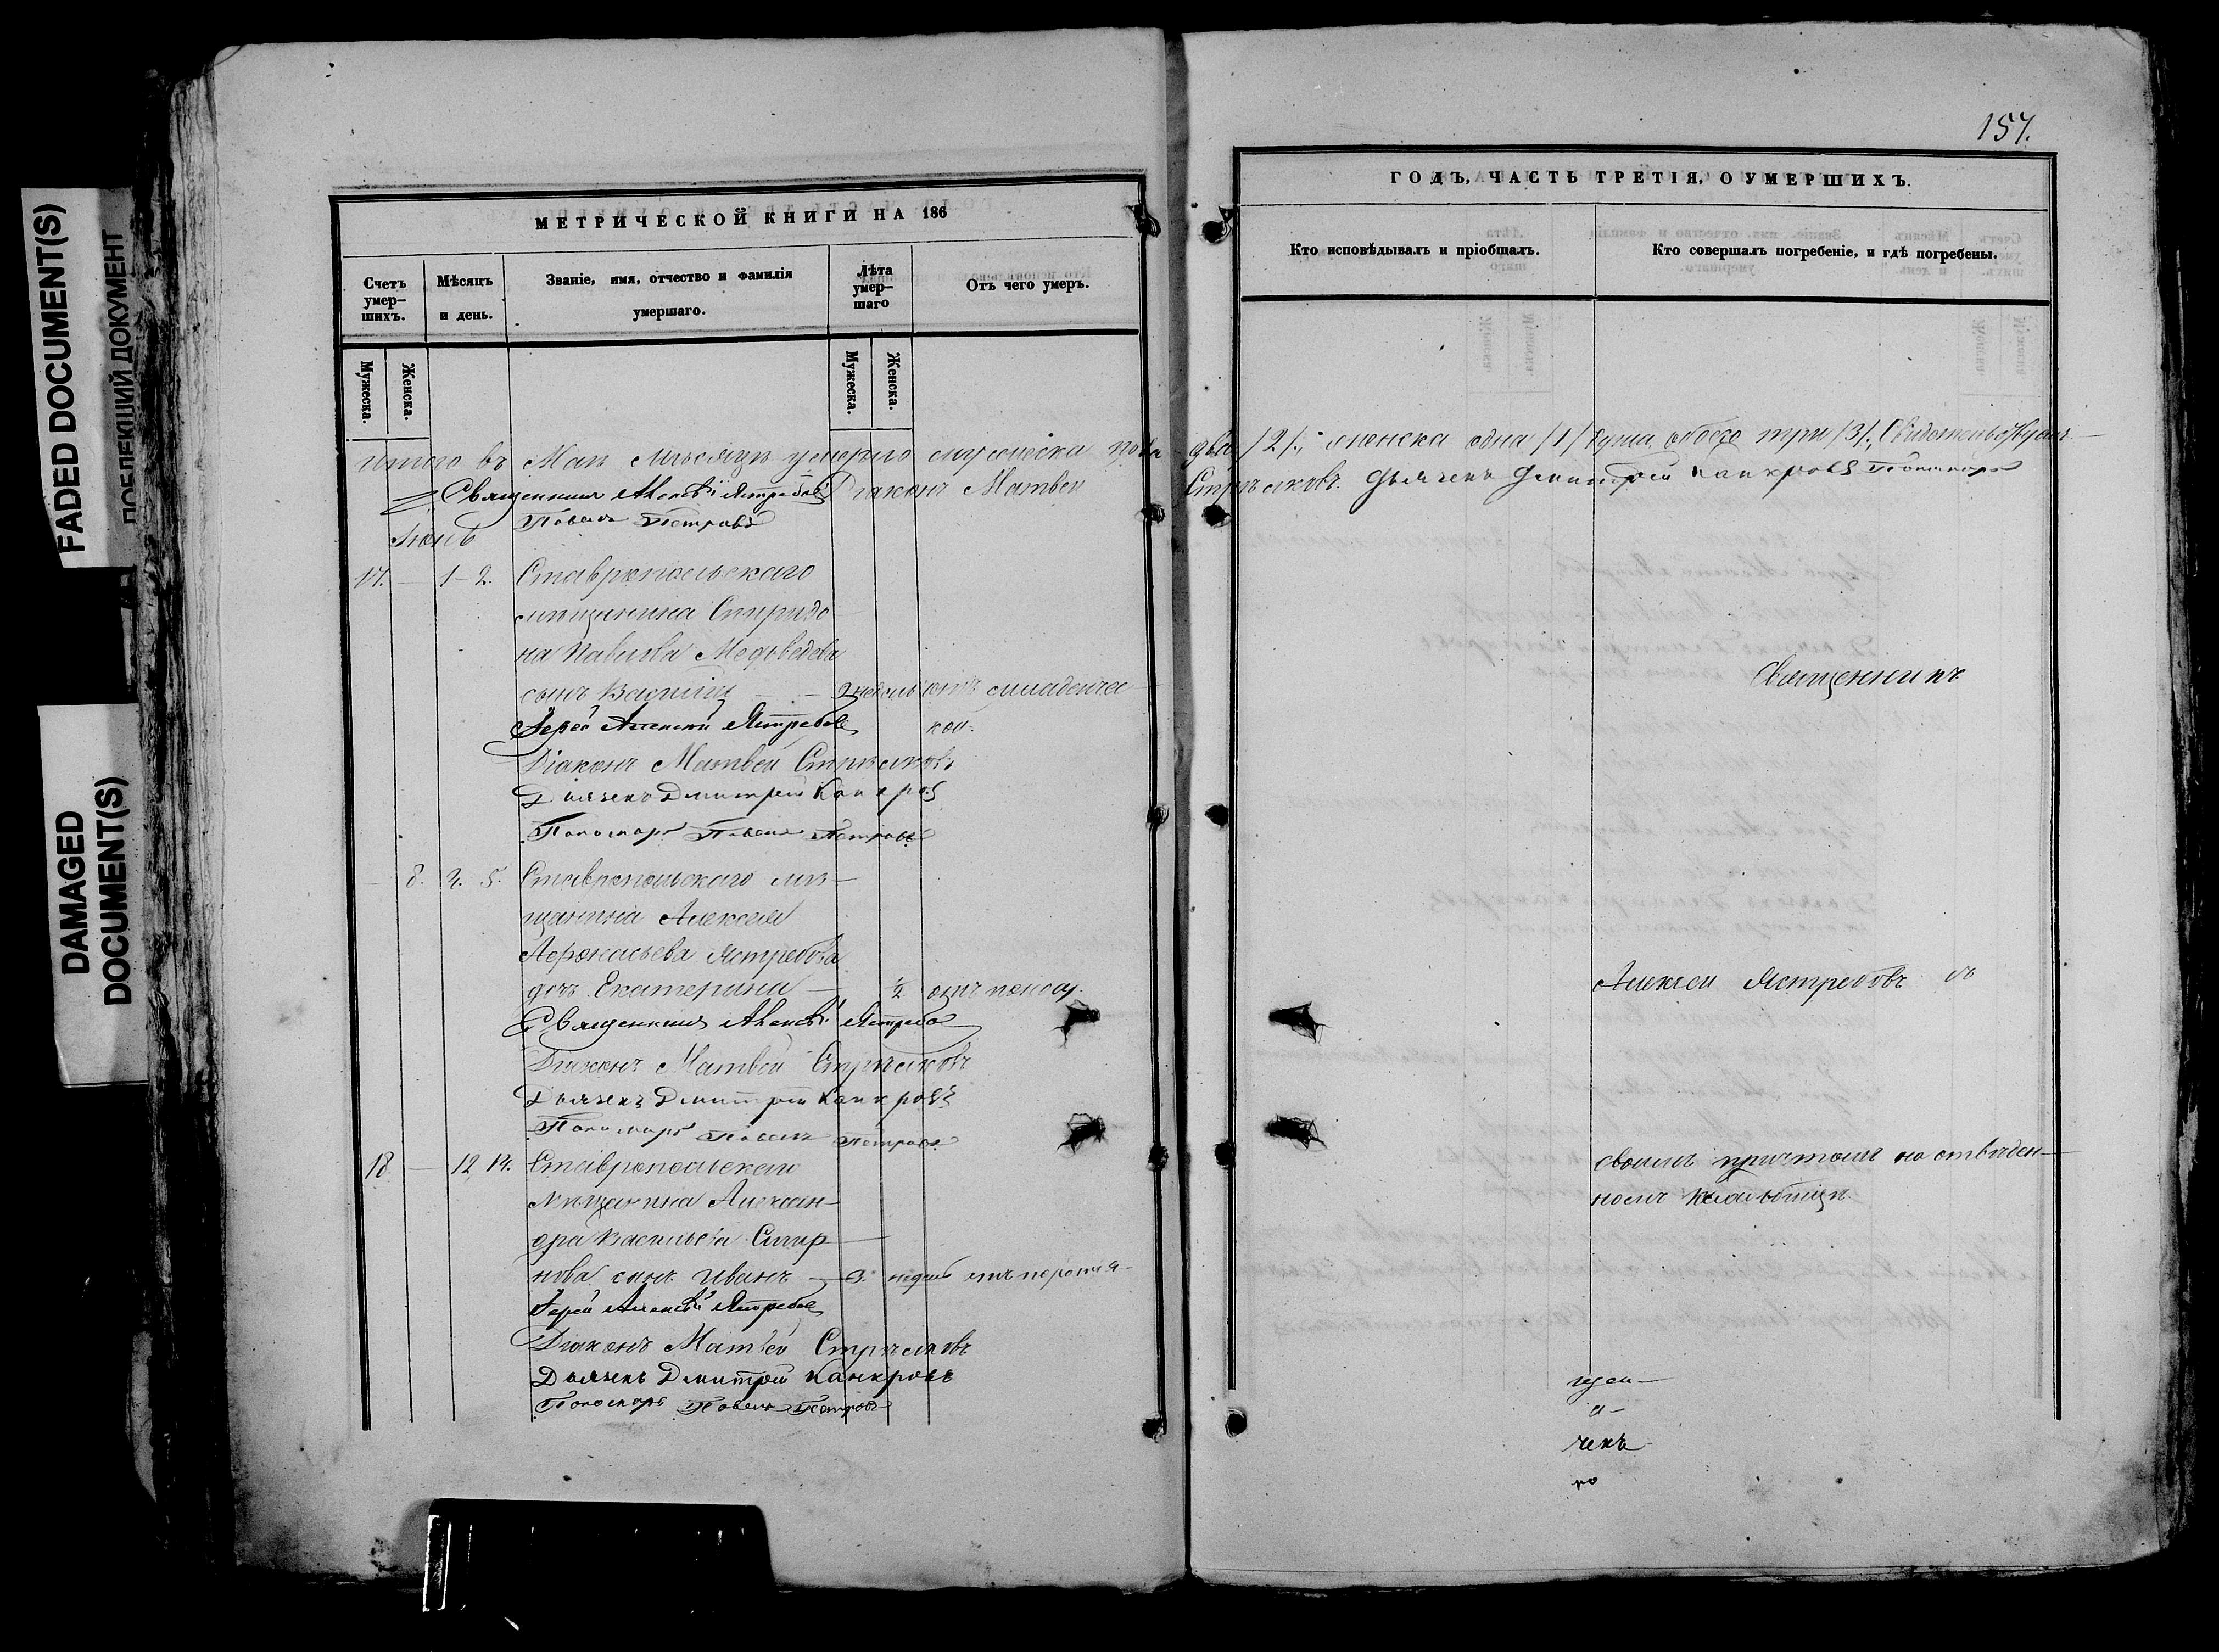 FADED DOCUMENT(S)
ПОБЛЕКШИЙ ДОКУМЕНТ
DAMAGED
DOCUMENT(S)
МЕТРИЧЕСКОЙ КНИГИ НА 186
Счетъ умер-шихъ.
Мѣсяцъ и день.
Званіе, имя, отчество и фамилія умершаго.
Лѣта умер-шаго
Отъ чего умеръ.
Мужеска.
Женска.
Мужеска.
Женска.
итого въ Маѣ мѣсяцѣ умерло мужеска пола
Священникъ Алексѣй Ястребовъ Діаконъ Матвѣй
Павелъ Петровъ
Іюнь
17. — 1 — 2. Ставропольскаго
мѣщанина Спиридо
на Павлова Медвѣдева
сынъ Василій — 2 недѣль отъ младенчес
Іерей Алексѣй Ястребовъ кой.
Діаконъ Матвѣй Стрѣлковъ
Дьячекъ Дмитрій Канкровъ
Пономарь Павелъ Петровъ
— 8. 5. Ставропольскаго мѣ—
щанина Алексѣя
Ястребова
дочь Екатерина — 1/2 отъ поносу.
Священникъ Алексѣй Ястребовъ
Діаконъ Матвѣй Стрѣлковъ
Дьячекъ Дмитрій Канкровъ
Пономарь Павелъ Петровъ
18 — 12 14. Ставропольскаго
мѣщанина Алексан—
дра Васильева Смир—
нова сынъ Иванъ — 3. недѣль отъ
Іерей Алексѣй Ястребовъ
Діаконъ Матвѣй Стрѣлковъ
Дьячекъ Дмитрій Канкровъ
Пономарь Павелъ Петровъ
157.
ГОДЪ, ЧАСТЬ ТРЕТІЯ, О УМЕРШИХЪ.
Кто исповѣдывалъ и пріобщалъ.
Кто совершалъ погребеніе, и гдѣ погребены.
два /2/., женска одна /1/ обоего три /3/.
Стрѣлковъ. Дьячекъ Дмитрій Канкровъ Пономарь
Священникъ
Алексѣй Ястребовъ съ
своимъ причтомъ на отведен—
номъ кладбищѣ.
щен—
а—
чекъ
но